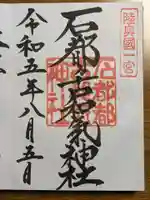 陸奥國一宮
石都々古和氣神社
石都都
神社
令和五年八月五日